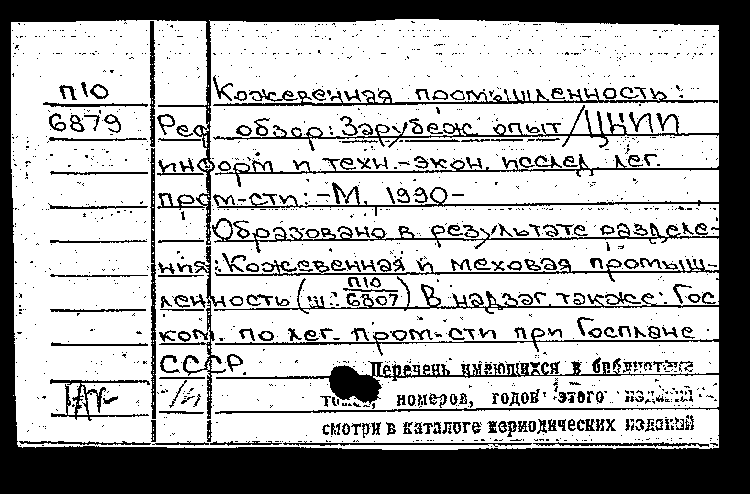 П10 Кожевенная промышленность:
6879 Реф обзор: Зарубеж опыт / ЦНИИ
информ. и техн.-экон. исслед. лег.
пром-сти: -М. 1990-
Образовано в результате разделе-
ния: Кожевенная и меховая промыш-
ленность (ш: П10/6807) В надзаг. также: Гос
ком. по лег. пром-сти при Госплане
СССР.
Перечень имеющихся в библиотеке
томов, номеров, годов этого издания
смотри в каталоге периодических изданий